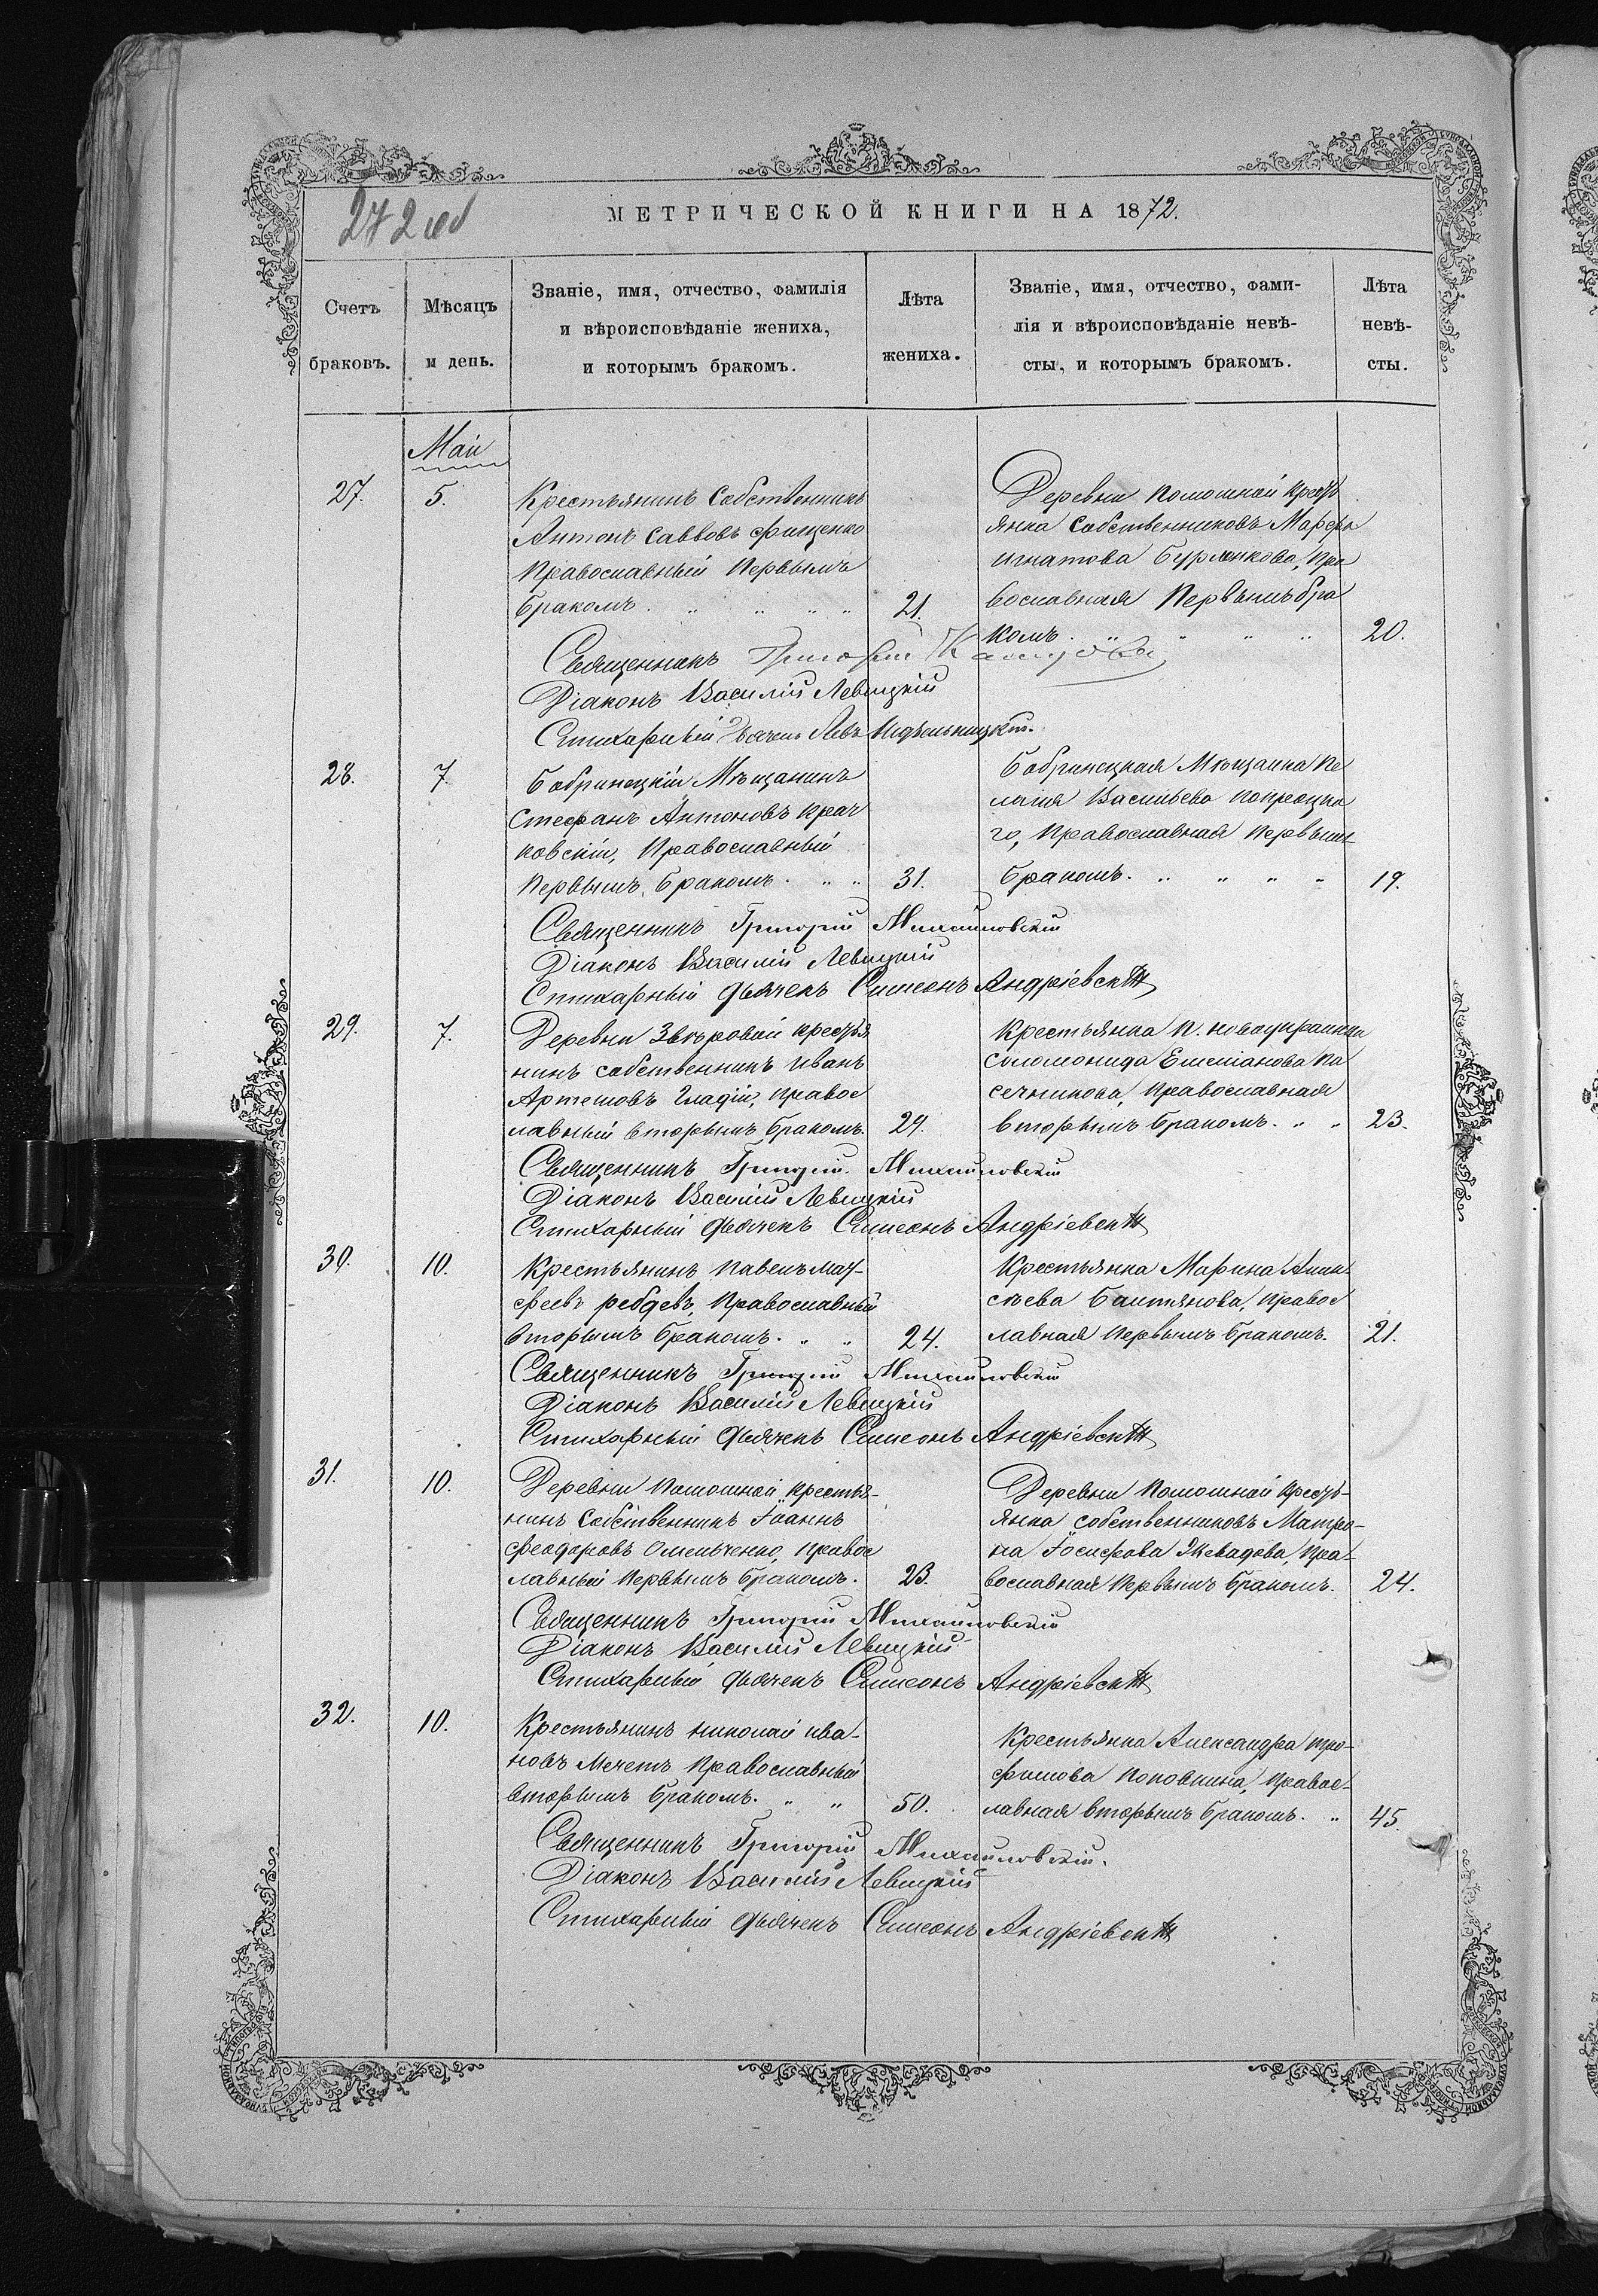 272 об
МЕТРИЧЕСКОЙ КНИГИ НА 1872.
Счетъ браковъ.
Мѣсяцъ и день.
Званіе, имя, отчество, фамилія
и вѣроисповѣданіе жениха,
и которымъ бракомъ.
Лѣта жениха.
Званіе, имя, отчество, фами-
лія и вѣроисповѣданіе невѣ-
сты, и которымъ бракомъ.
Лѣта
невѣ-
сты.
Май
27. 5.
Крестьянинъ собственникъ
Антонъ Савовъ Фищенко
Православный первымъ
бракомъ. 21.
Деревни Помошной крест
янка собственниковъ Марфа
Игнатова Бурлякова, Пра
вославная Первымъ бра
комъ. 20.
Священникъ Григорій
Діаконъ Василій Левицкій
Стихарный Дьячекъ Левъ
28. 7.
Бобринецкій Мѣщанинъ
Стефанъ Антоновъ Крач
ковскій, Православный
Первымъ бракомъ. 31.
Бобринецкая Мѣщанка Пе
лагія Васильева
го, Православная первымъ
бракомъ. 19.
Священникъ Григорій Михайловскій
Діаконъ Василій Левицкій
Стихарный дьячекъ Симеонъ Андріевскій
29. 7.
Деревни Звѣровой крестья
нинъ собственникъ Иванъ
Артемовъ Гладій, Правос
лавный вторымъ бракомъ. 29.
Крестьянка п. Новоукраинки
Соломонида Емеліанова Па
сечникова, Православная
вторымъ бракомъ. 23.
Священникъ Григорій Михайловскій
Діаконъ Василій Левицкій
Стихарный дьячекъ Симеонъ Андріевскій
30. 10.
Крестьянинъ Павелъ Мат-
феевъ Православный
вторымъ бракомъ. 24.
Крестьянка Марина Алек-
сѣева Балтянова, Правос
лавная первымъ бракомъ. 21.
Священникъ Григорій Михайловскій
Діаконъ Василій Левицкій
Стихарный дьячекъ Симеонъ Андріевскій
31. 10.
Деревни Помошной крестья-
нинъ собственникъ Іоаннъ
Феодоровъ Омельченко, Правос
лавный первымъ бракомъ. 23.
Деревни Помошной крестъ-
янка собственниковъ Матро-
на Іосифова Пра-
вославная первымъ бракомъ. 24.
Священникъ Григорій Михайловскій
Діаконъ Василій Левицкій
Стихарный дьячекъ Симеонъ Андріевскій
32. 10.
Крестьянинъ Николай Ива-
новъ Мечетъ Православный
вторымъ бракомъ. 50.
Крестьянка Александра Тро-
фимова Поповкина, Правос-
лавная вторымъ бракомъ. 45.
Священникъ Григорій Михайловскій.
Діаконъ Василій Левицкій
Стихарный дьячекъ Симеонъ Андріевскій